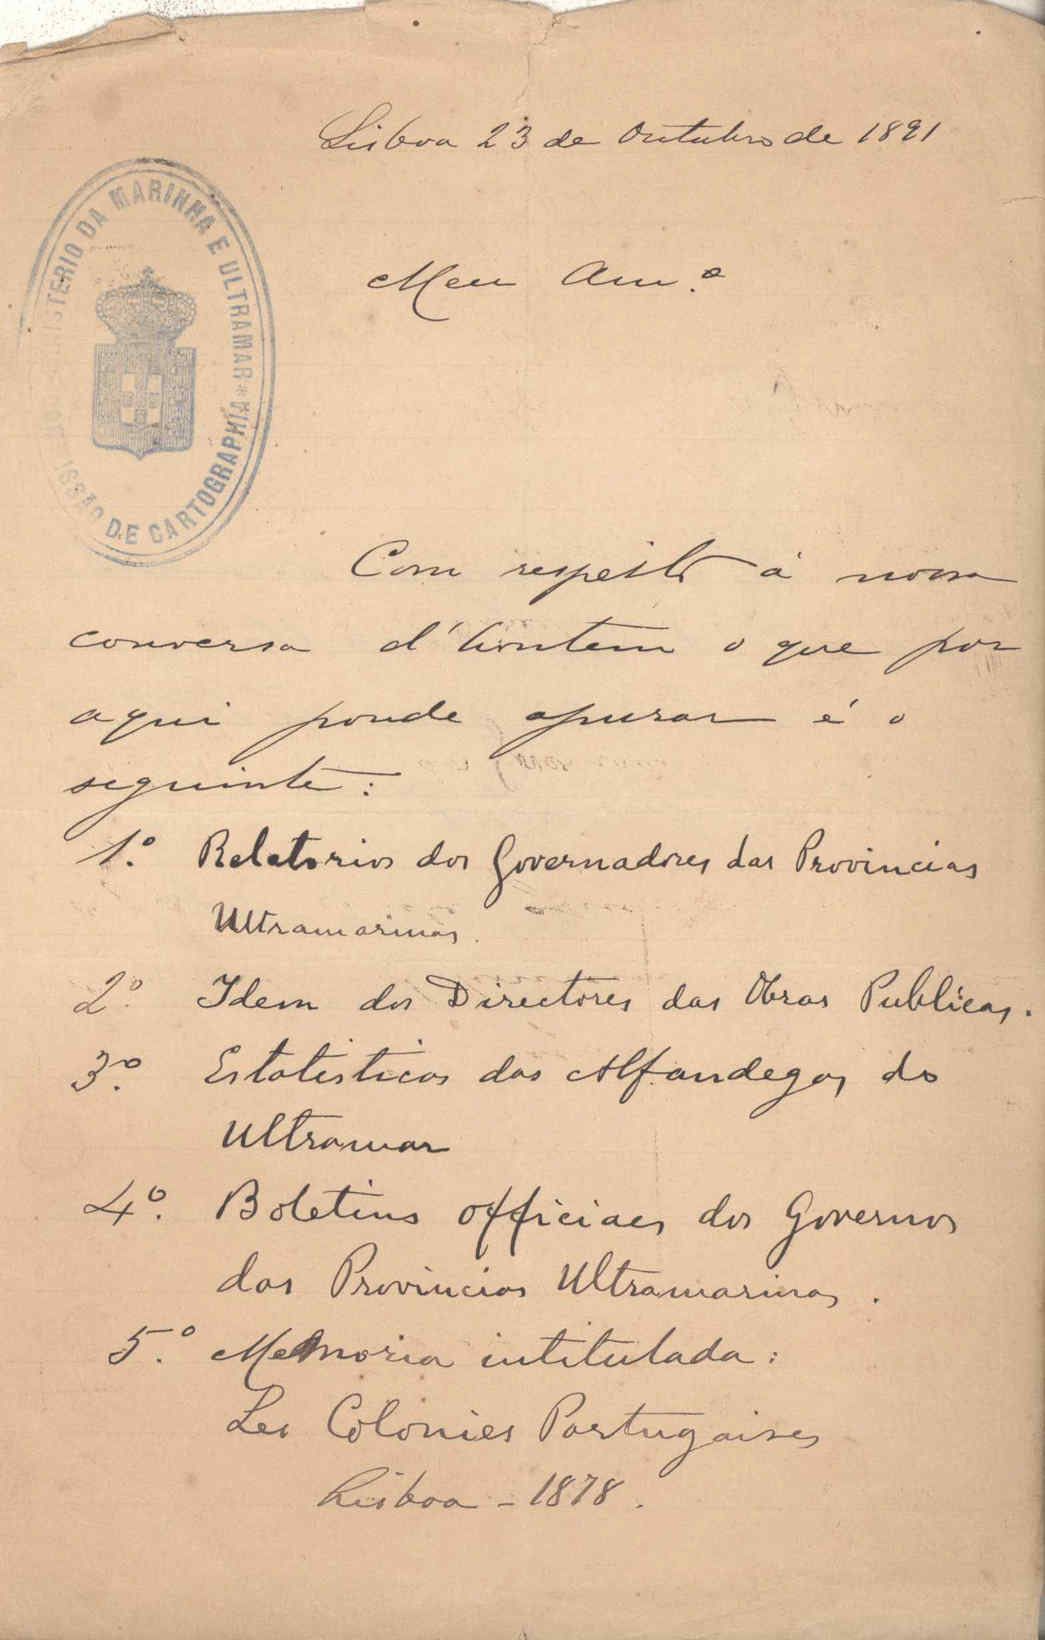 Lisboa 23 de Outubro de 1891
MINISTERIO DA MARINHA E ULTRAMAR * 
ISSÃO DE CARTOGRAPHIA
Meu Am.º
Com respeito á nossa
conversa d'hontem o que por
aqui poude apurar é o
seguinte:
1.º Relatorios dos Governadores das Provincias
Ultramarinas.
2.º Idem dos Directores das Obras Publicas.
3.º Estatisticas das Alfandegas do
Ultramar
4.º Boletins officiaes dos Governos
das Provincias Ultramarinas.
5.º Memoria intitulada:
Les Colonies Portugaises
Lisboa - 1878.